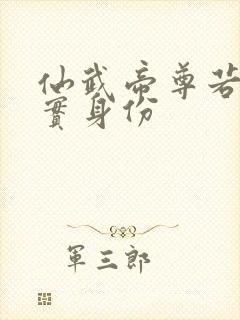 仙武帝尊若
實身份
軍三郎